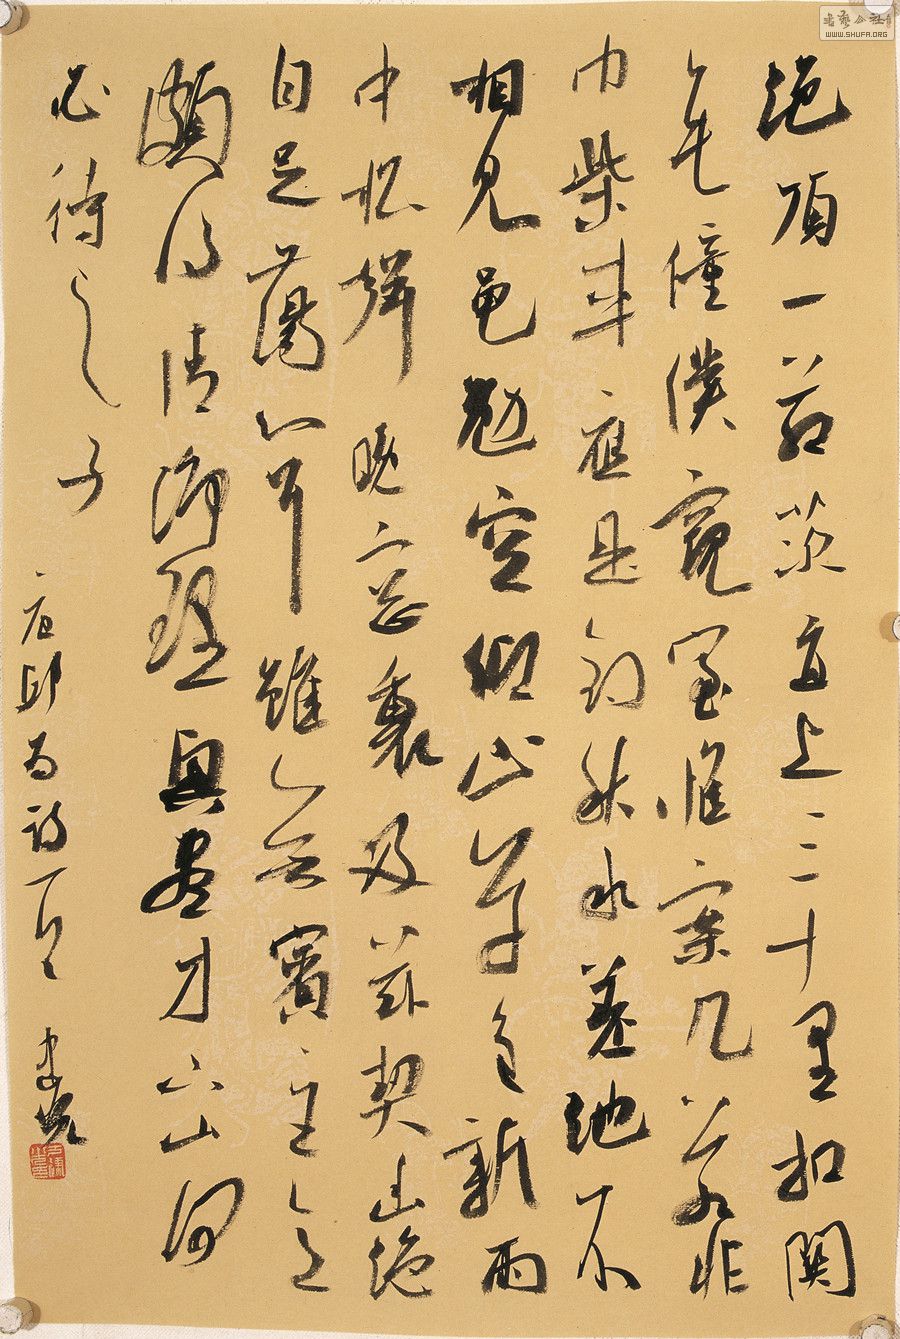 絕頂一茅茨直上三十里扣關
無僮僕窺室惟案几若非
巾柴車應是釣秋水差池不
相見黽勉空仰止草色新雨
中松聲晚窗裏及茲契幽絕
自足蕩心耳雖無賓主意
頗得清淨理興盡方下山何
必待之子
唐邱為詩一首
書藝公社
WWW.SHUFA.ORG